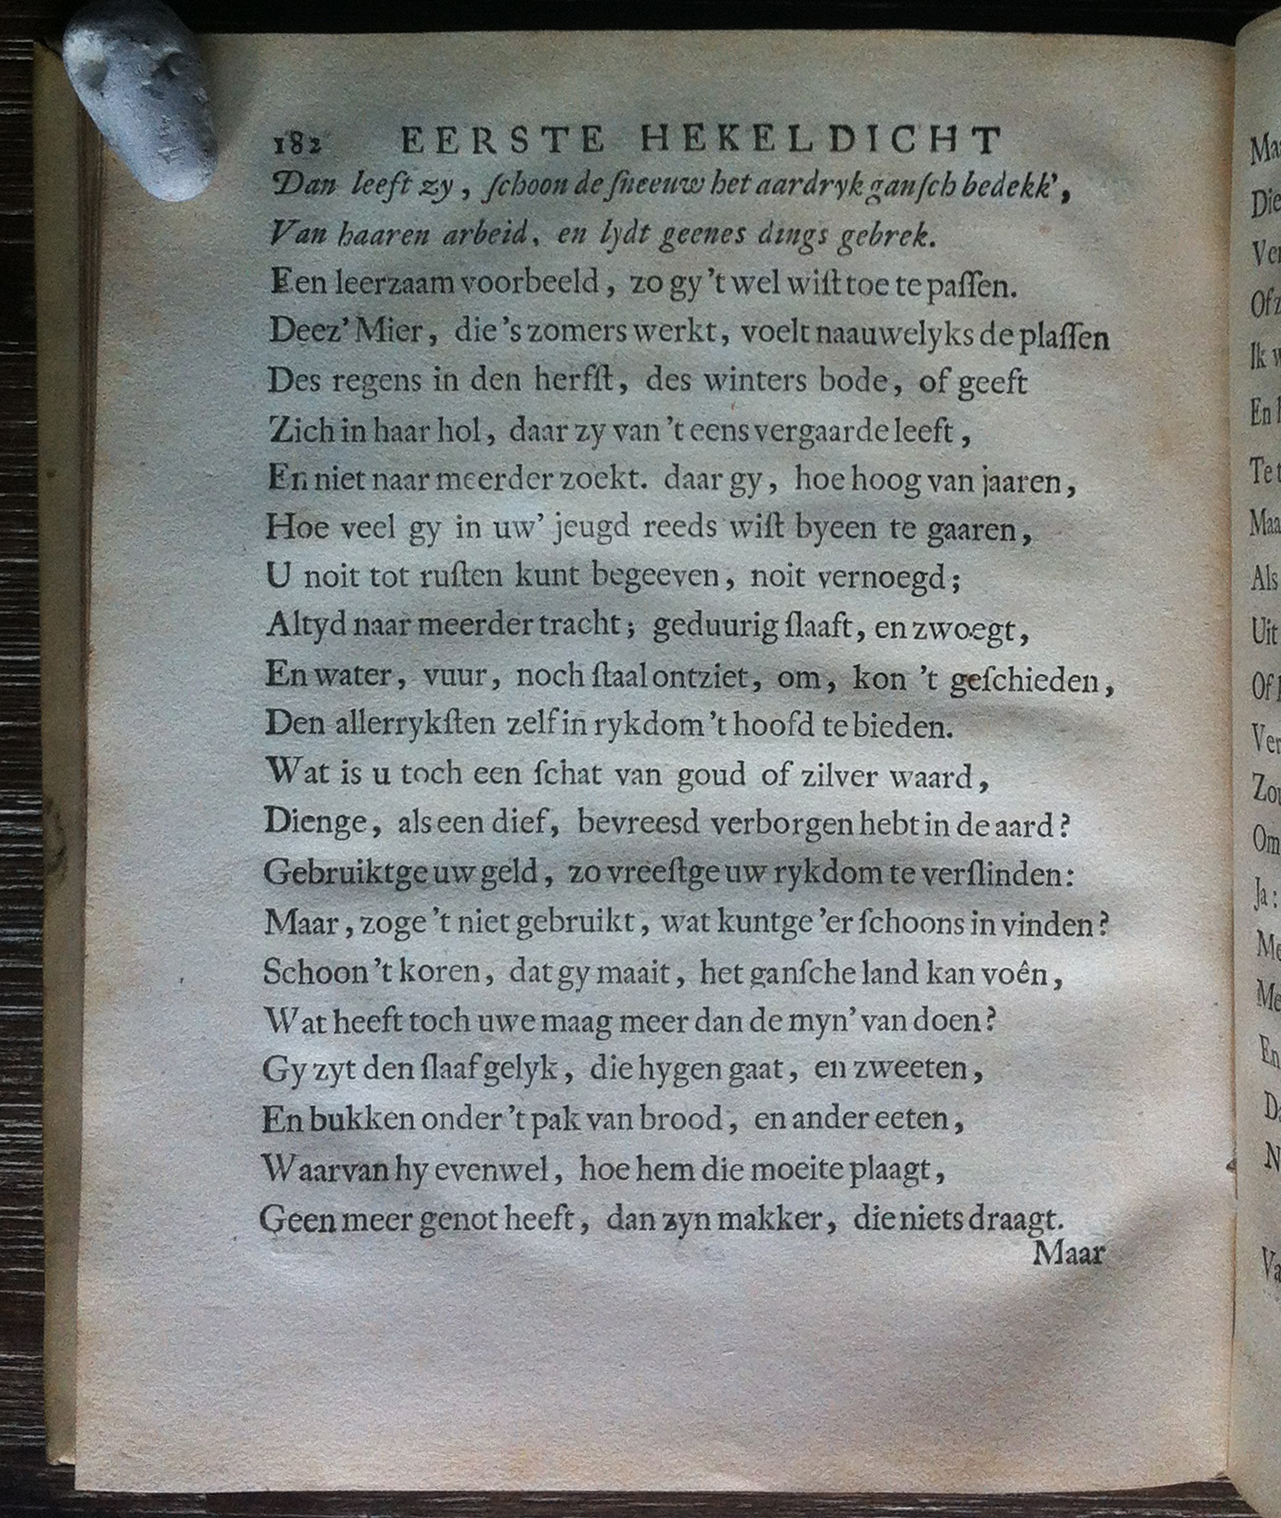 182 EERSTE HEKELDICHT
Dan leeft zy, ſchoon de ſneeuw het aardryk ganſch bedekk',
Van haaren arbeid, en lydt geenes dings gebrek.
Een leerzaam voorbeeld, zo gy 't wel wiſt toe te paſſen.
Deez' Mier, die 's zomers werkt, voelt naauwelyks de plaſſen
Des regens in den herfſt, des winters bode, of geeft
Zich in haar hol, daar zy van 't eens vergaarde leeft,
En niet naar meerder zoekt. daar gy, hoe hoog van jaaren,
Hoe veel gy in uw' jeugd reeds wiſt byeen te gaaren,
U noit tot ruſten kunt begeeven, noit vernoegd;
Altyd naar meerder tracht; geduurig ſlaaft, en zwoegt,
En water, vuur, noch ſtaal ontziet, om, kon 't geſchieden,
Den allerrykſten zelf in rykdom 't hoofd te bieden.
Wat is u toch een ſchat van goud of zilver waard,
Dienge, als een dief, bevreesd verborgen hebt in de aard?
Gebruiktge uw geld, zo vreeſtge uw rykdom te verſlinden:
Maar, zoge 't niet gebruikt, wat kuntge 'er ſchoons in vinden?
Schoon 't koren, dat gy maait, het ganſche land kan voên,
Wat heeft toch uwe maag meer dan de myn' van doen?
Gy zyt den ſlaaf gelyk, die hygen gaat, en zweeten,
En bukken onder 't pak van brood, en ander eeten,
Waarvan hy evenwel, hoe hem die moeite plaagt,
Geen meer genot heeft, dan zyn makker, die niets draagt.
Maar
Die
Ik
Te
Als
Uit
Om
Ja;